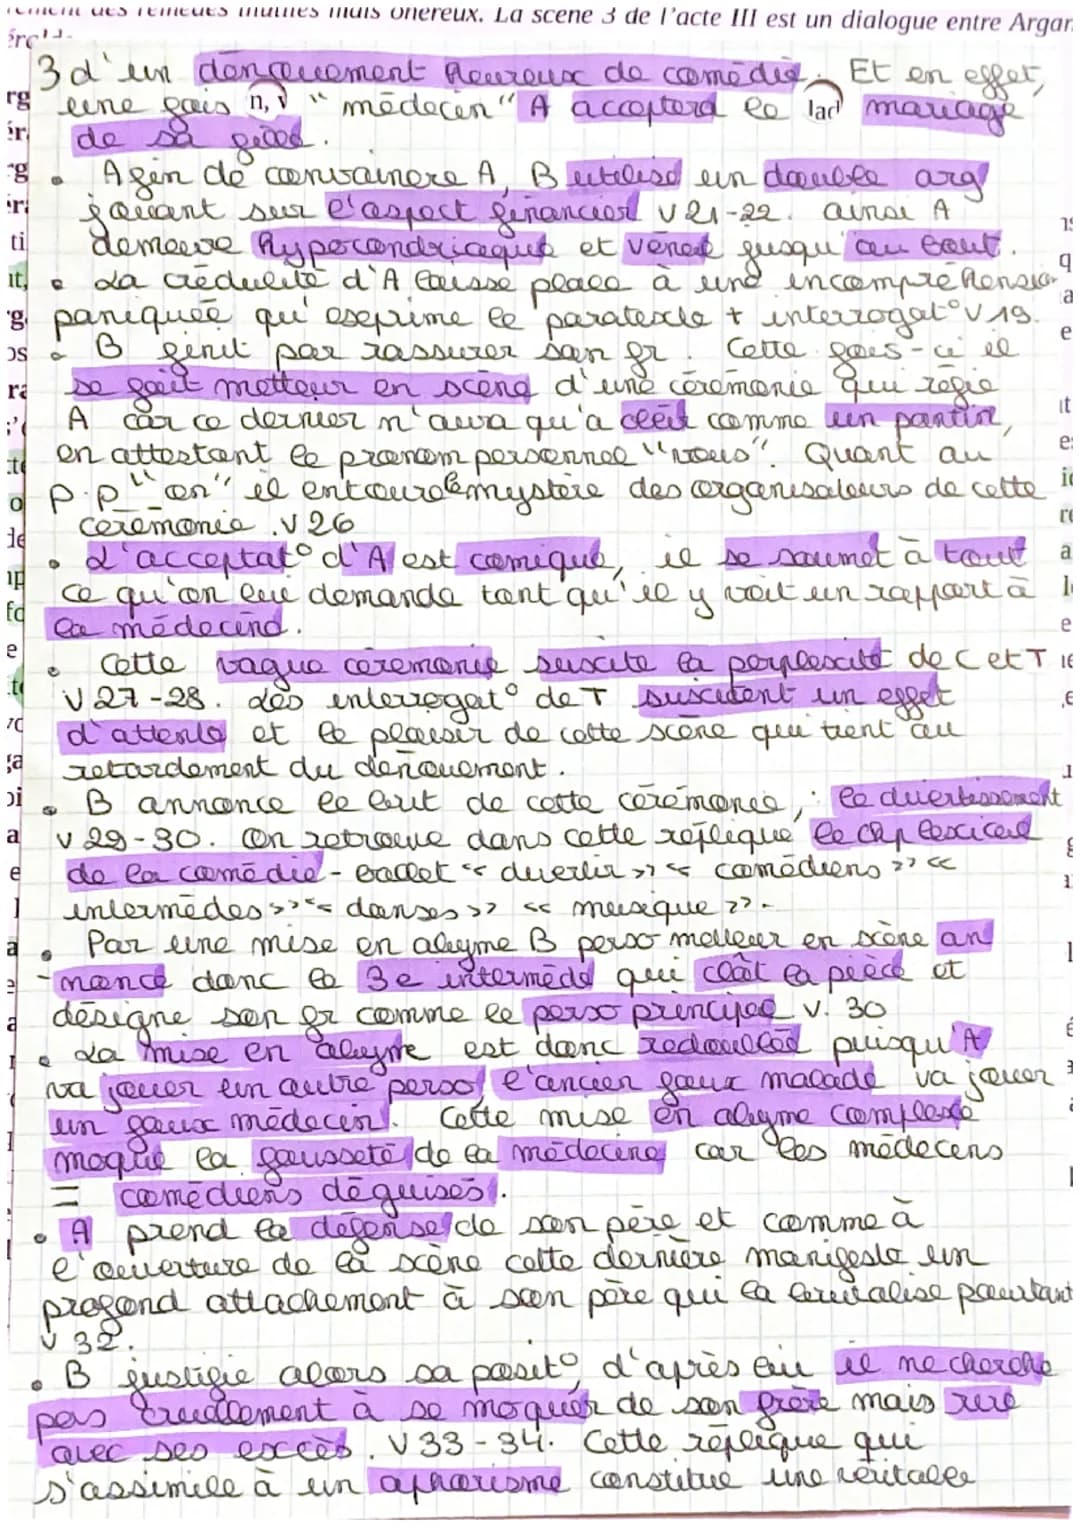 remèdes inutiles mais onéreux. La scène 3 de l'acte III est un dialogue entre Argan
3 d'un dénouement heureux de comédie. Et en effet,
une fois "médecin" A acceptera le mariage
de sa fille.
• Afin de convaincre A, B utilise un double arg
jouant sur l'aspect financier v 21-22. ainsi A
demeure hypocondriaque et vénal jusqu'au bout.
• La crédulité d'A laisse place à une incompréhension
paniquée qu'exprime le paratexte + interrogat° v 19.
• B finit par rassurer son fr. Cette fois-ci il
se fait metteur en scène d'une cérémonie qui régie
A car ce dernier n'aura qu'a obéit comme un pantin,
en attestant le pronom personnel "vous". Quant au
p.p "on" il entoure le mystère des organisateurs de cette
cérémonie. v 26
• L'acceptat° d'A est comique, il se soumet à tout
ce qu'on lui demande tant qu'il y voit un rapport à
la médecine.
• Cette vague cérémonie suscite la perplexité de C et T
v 27-28. Les interrogat° de T suscitent un effet
d'attente et le plaisir de cette scène qui tient au
retardement du dénouement.
• B annonce le but de cette cérémonie, : le divertissement
v 29-30. On retrouve dans cette réplique le chp lexical
de la comédie-ballet << divertir >> << comédiens >> <<
intermèdes >> << danses >> << musique >>.
• Par une mise en abyme B perso metteur en scène an
-nonce donc le 3e intermède qui clôt la pièce et
désigne son fr comme le perso principal v. 30
• La mise en abyme est donc redoublée puisqu'A
va jouer un autre perso, l'ancien faux malade va jouer
un faux médecin. Cette mise en abyme complexe
moque la fausseté de la médecine car les médecins
= comédiens déguisés.
• A prend la défense de son père et comme à
l'ouverture de la scène cette dernière manifeste un
profond attachement à son père qui la brutalise pourtant
v 32.
• B justifie alors sa posit°, d'après lui il ne cherche
pas cruellement à se moquer de son frère mais rire
avec ses excès. v 33-34. Cette réplique qui
s'assimile à un aphorisme constitue une véritable